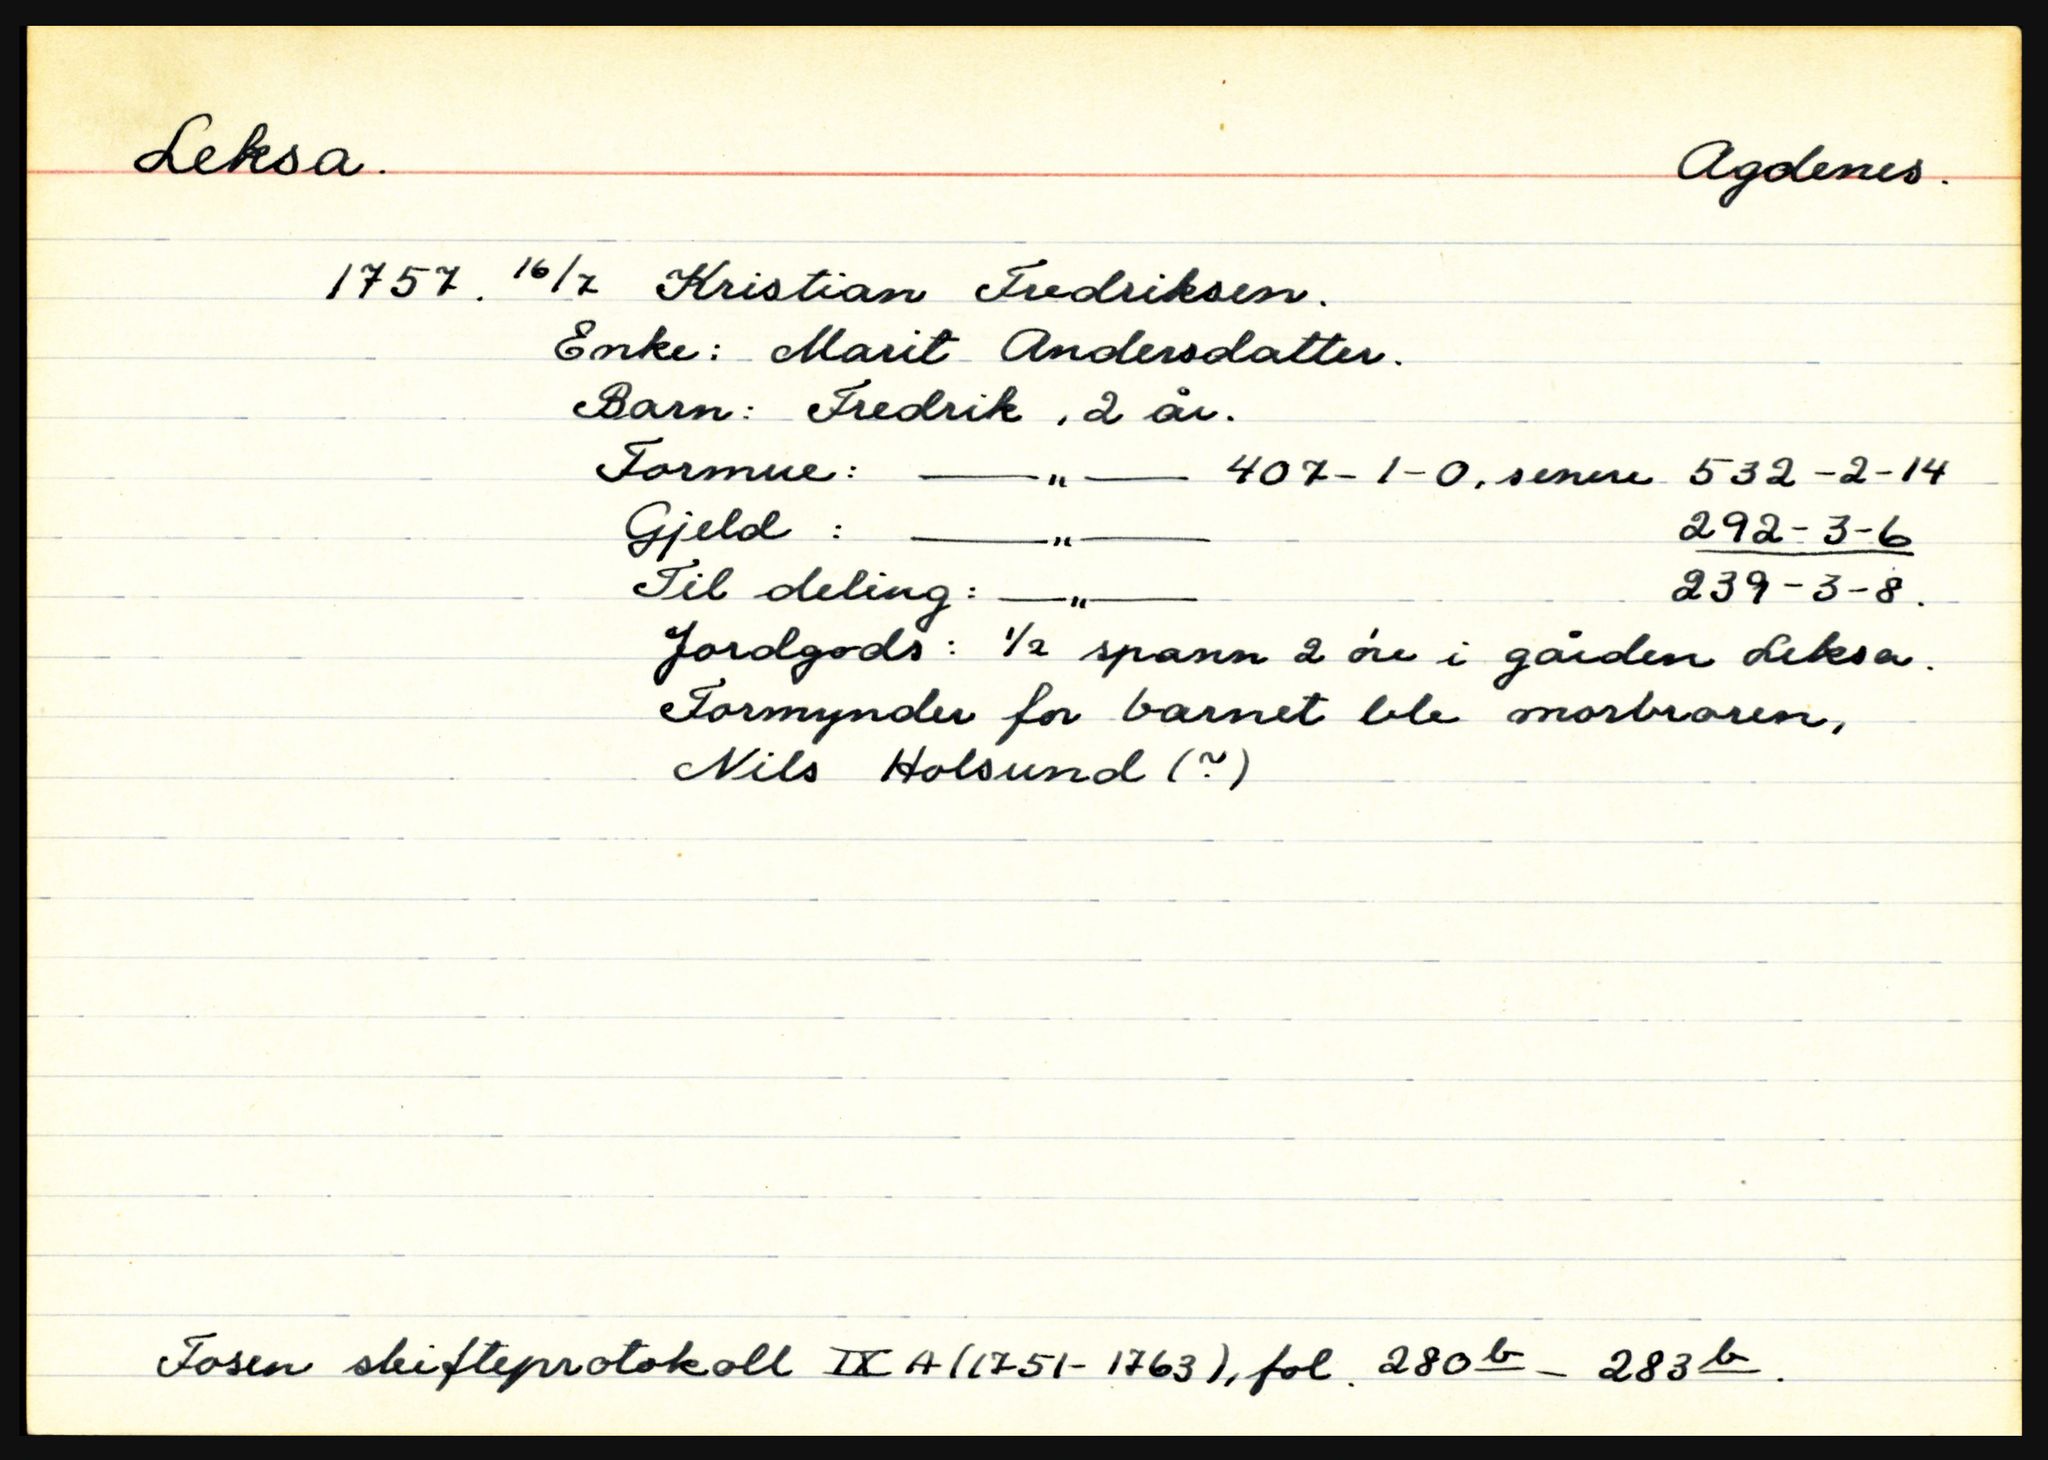 Leksa. Agdenes.
1757. 16/7 Kristian Fredriksen.
Enke: Marit Andersdatter.
Barn: Fredrik, 2 år.
Formue: —„— 407-1-0, senere 532-2-14
Gjeld: —„— 292-3-6
Til deling: —„— 239-3-8.
Jordgods: 1/2 spann 2 øre i gården Leksa.
Formynder for barnet ble morbroren,
Nils Holsund (?)
Fosen skifteprotokoll IX A (1751-1763), fol. 280b - 283b.